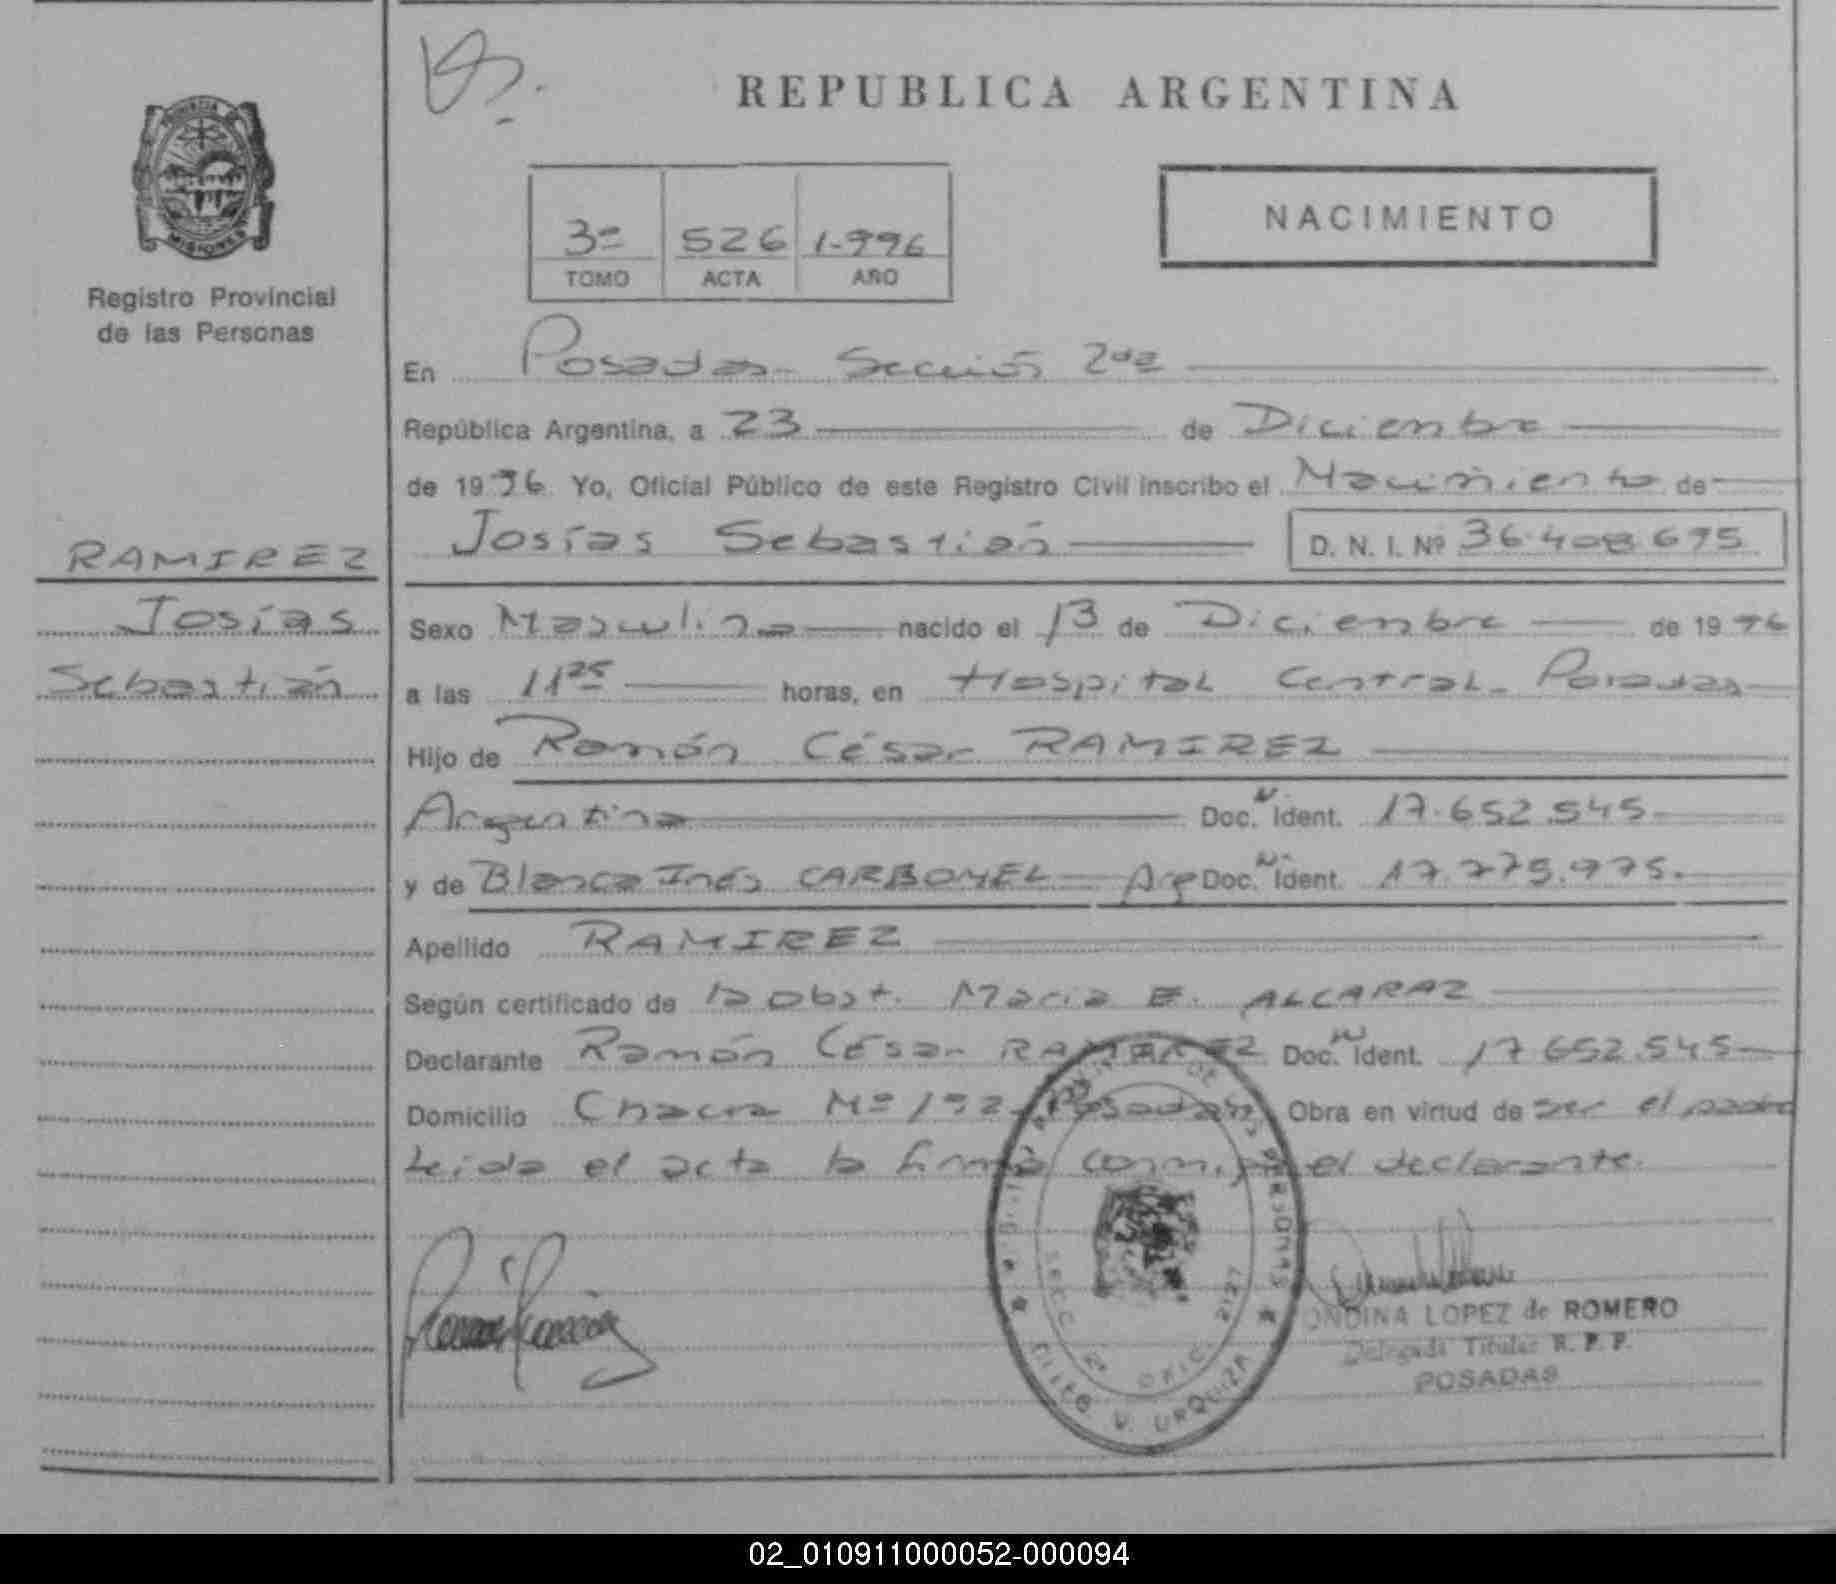 REPUBLICA ARGENTINA
MISIONES
Registro Provincial
de las Personas
3º 526 1.996
TOMO ACTA AÑO
NACIMIENTO
En Posadas - Sección 2da
República Argentina, a 23 de Diciembre
de 1996. Yo, Oficial Público de este Registro Civil inscribo el Nacimiento de
Josías Sebastián D. N. I. Nº 36.408.695
RAMIREZ
Josías
Sebastián
Sexo Masculino nacido el 13 de Diciembre de 1996
a las 11 25 horas, en Hospital Central - Posadas
Hijo de Ramón César RAMIREZ
Argentina Doc. N Ident. 17.652.545
y de Blanca Inés CARBONEL Arg Doc. N Ident. 17.775.975.
Apellido RAMIREZ
Según certificado de la Obst. Maria E. ALCARAZ
Declarante Ramón César RAMIREZ Doc. N Ident. 17 652.545
Domicilio Chacra Nº 192 - Posadas Obra en virtud de ser el padre
Leida el acta la firma conmigo el declarante.
PERSONAS
SECC. 2 OFIC. 2127
V. URQUIZA
ONDINA LOPEZ de ROMERO
Delegada Titular R. P. P.
POSADAS
02_010911000052-000094